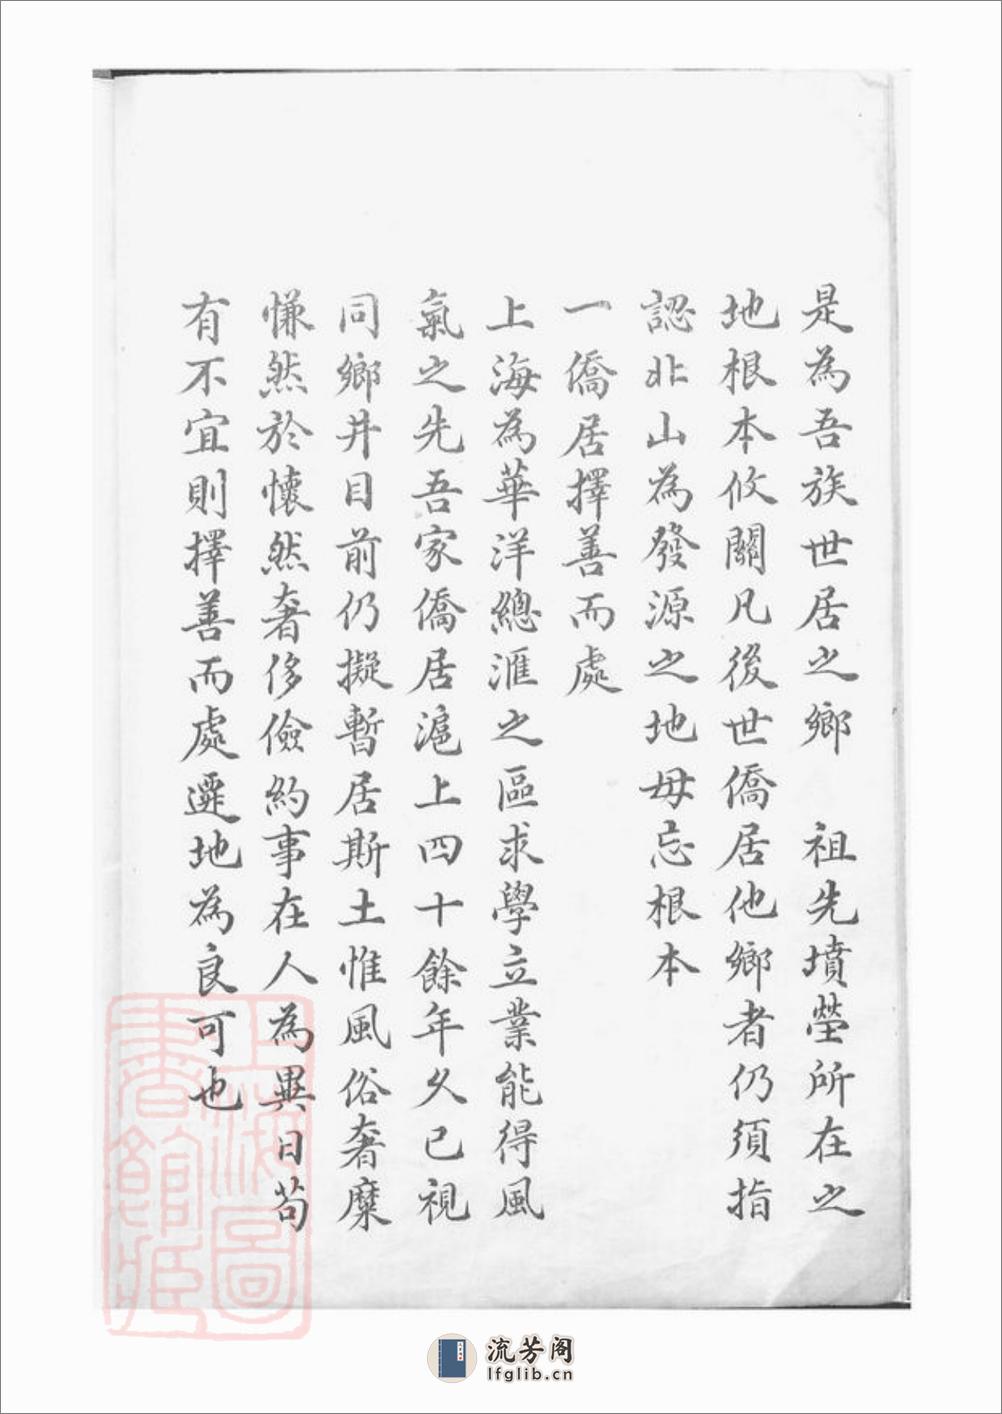 是為吾族世居之鄉　祖先墳塋所在之
地根本攸關凡後世僑居他鄉者仍須指
認北山為發源之地毋忘根本
一僑居擇善而處
上海為華洋總滙之區求學立業能得風
氣之先吾家僑居滬上四十餘年久已視
同鄉井目前仍擬暫居斯土惟風俗奢糜
慊然於懷然奢侈儉約事在人為異日苟
有不宜則擇善而處遷地為良可也
上海圖
書館藏
流芳阁
lfglib.cn